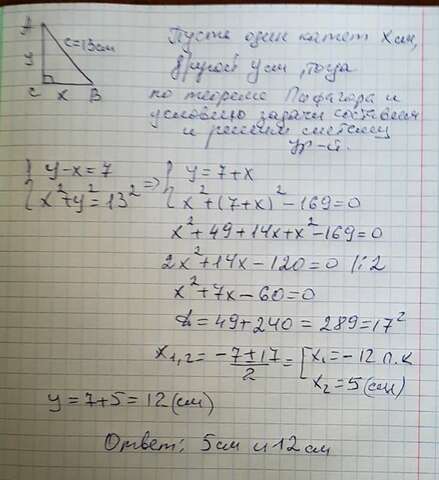 A
c=13см
y
C x B
Пусть один катет x см,
другой y см, тогда
по теореме Пифагора и
условию задачи составим
и решим систему
ур-й.
{ y-x=7 => { y=7+x
{ x²+y²=13² { x²+(7+x)²-169=0
x²+49+14x+x²-169=0
2x²+14x-120=0 |:2
x²+7x-60=0
D=49+240=289=17²
x₁,₂= (-7±17)/2 = [ x₁=-12 п.к
x₂=5(см)
y=7+5=12(см)
Ответ: 5см и 12см